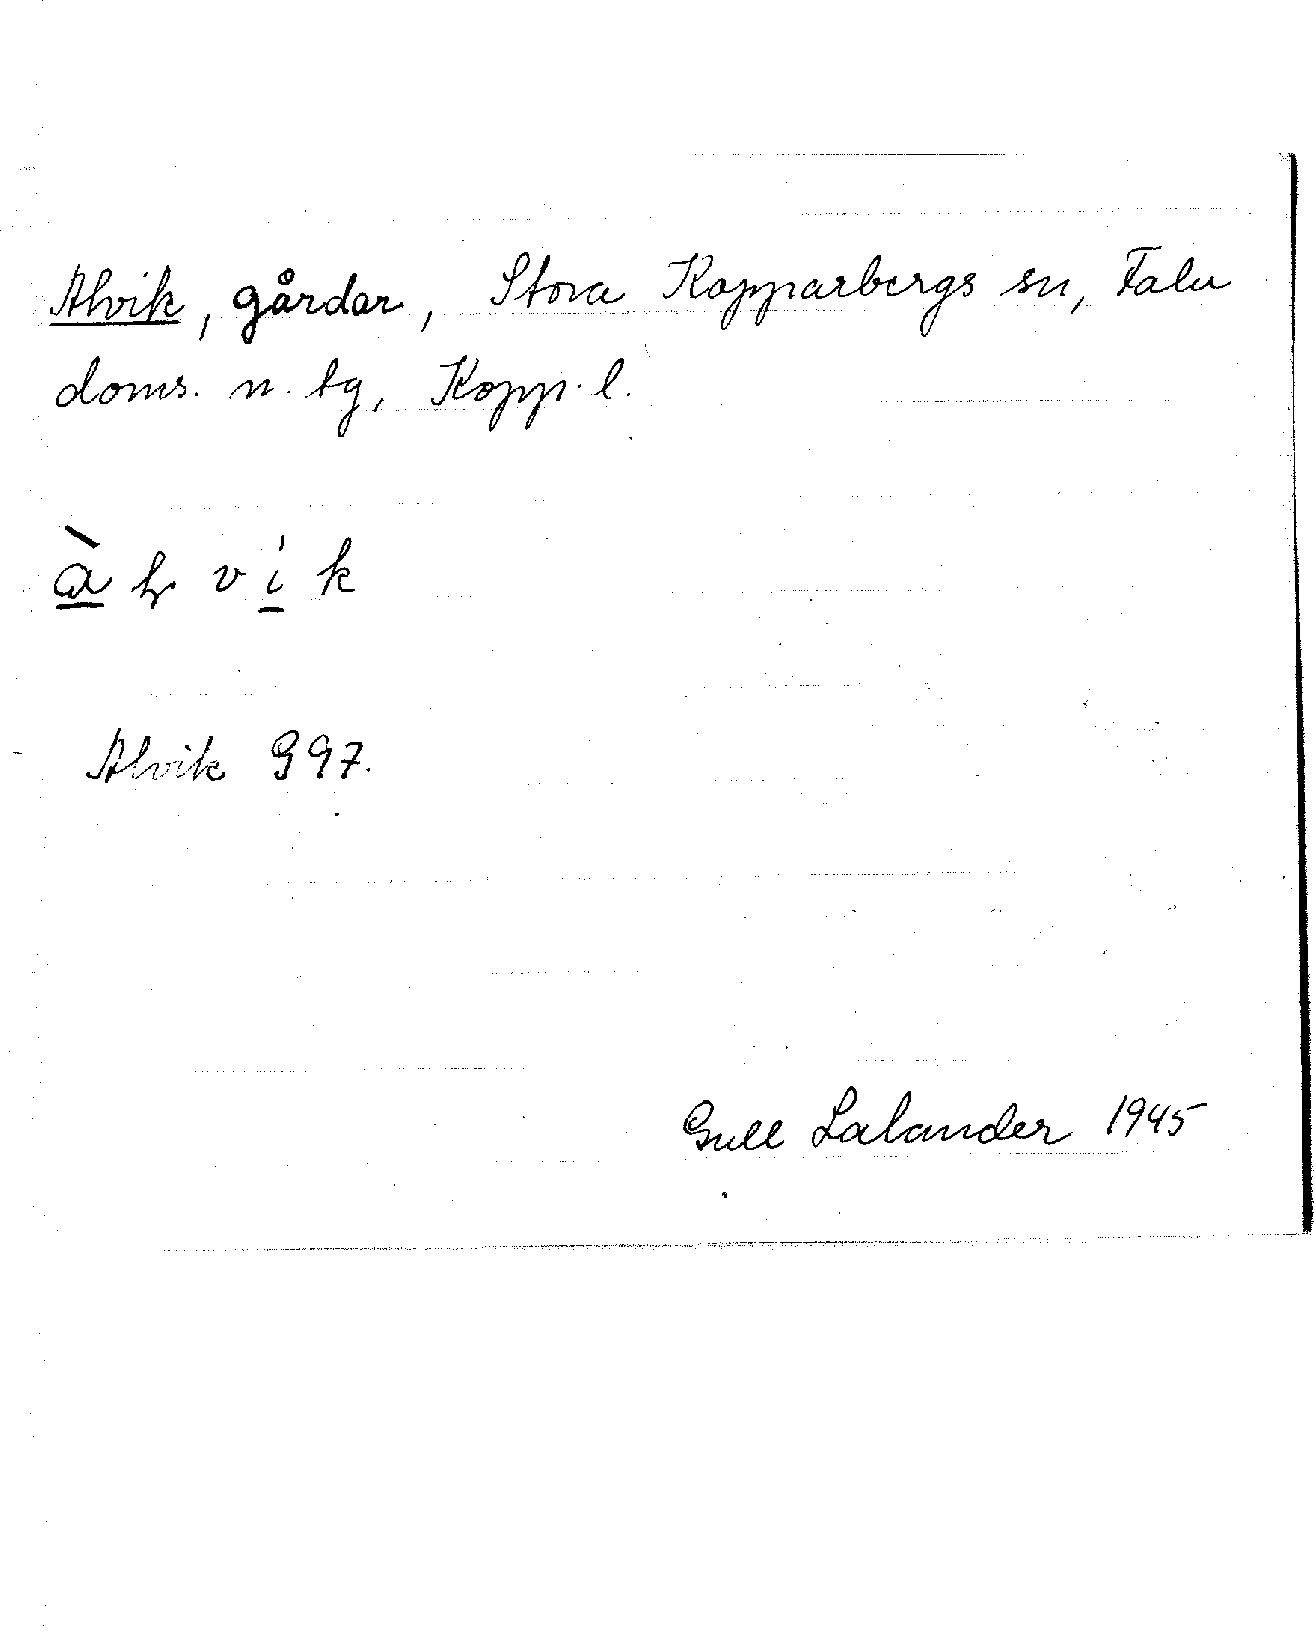 Alvik, gårdar, Stora Kopparbergs sn, Falu
doms. n. tg, Kopp. l.
à ɽ v i k
Alvik G97.
Gull Lalander 1945